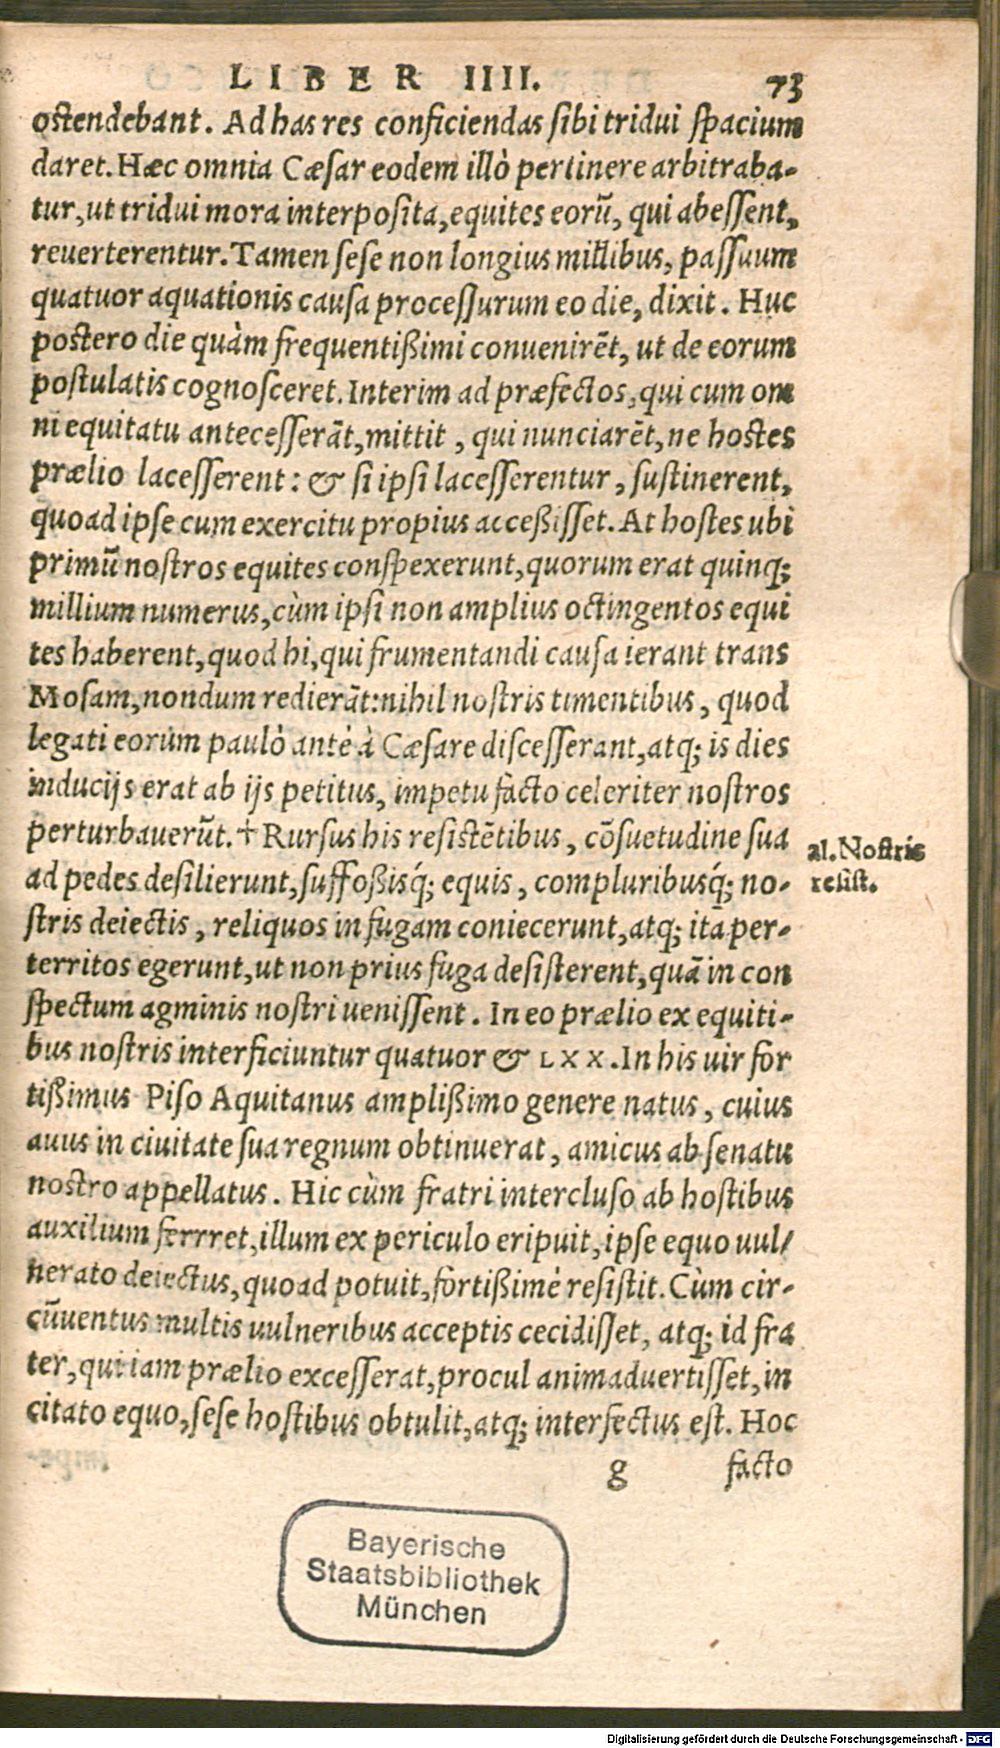 LIBER IIII. 73
ostendebant. Ad has res conficiendas sibi tridui spacium
daret. Hæc omnia Cæsar eodem illò pertinere arbitraba-
tur, ut tridui mora interposita, equites eorũ, qui abessent,
reuerterentur. Tamen sese non longius millibus, passuum
quatuor aquationis causa processurum eo die, dixit. Huc
postero die quàm frequentißimi conuenirẽt, ut de eorum
postulatis cognosceret. Interim ad præfectos, qui cum om
ni equitatu antecesserãt, mittit, qui nunciarẽt, ne hostes
prælio lacesserent: & si ipsi lacesserentur, sustinerent,
quoad ipse cum exercitu propius acceßisset. At hostes ubi
primũ nostros equites conspexerunt, quorum erat quinq;
millium numerus, cùm ipsi non amplius octingentos equi
tes haberent, quod hi, qui frumentandi causa ierant trans
Mosam, nondum redierãt: nihil nostris timentibus, quod
legati eorum paulò antè à Cæsare discesserant, atq; is dies
inducijs erat ab ijs petitus, impetu facto celeriter nostros
perturbauerũt. † Rursus his resistẽtibus, cõsuetudine sua
al. Nostris
resist.
ad pedes desilierunt, suffoßisq́; equis, compluribusq́; no-
stris deiectis, reliquos in fugam coniecerunt, atq; ita per-
territos egerunt, ut non prius fuga desisterent, quã in con
spectum agminis nostri uenissent. In eo prælio ex equiti-
bus nostris interficiuntur quatuor & LXX. In his uir for
tißimus Piso Aquitanus amplißimo genere natus, cuius
auus in ciuitate sua regnum obtinuerat, amicus ab senatu
nostro appellatus. Hic cùm fratri intercluso ab hostibus
auxilium ferrret, illum ex periculo eripuit, ipse equo uul/
nerato deiectus, quoad potuit, fortißimè resistit. Cùm cir-
cũuentus multis uulneribus acceptis cecidisset, atq; id fra
ter, qui iam prælio excesserat, procul animaduertisset, in
citato equo, sese hostibus obtulit, atq; interfectus est. Hoc
g facto
Bayerische
Staatsbibliothek
München
Digitalisierung gefördert durch die Deutsche Forschungsgemeinschaft - DFG